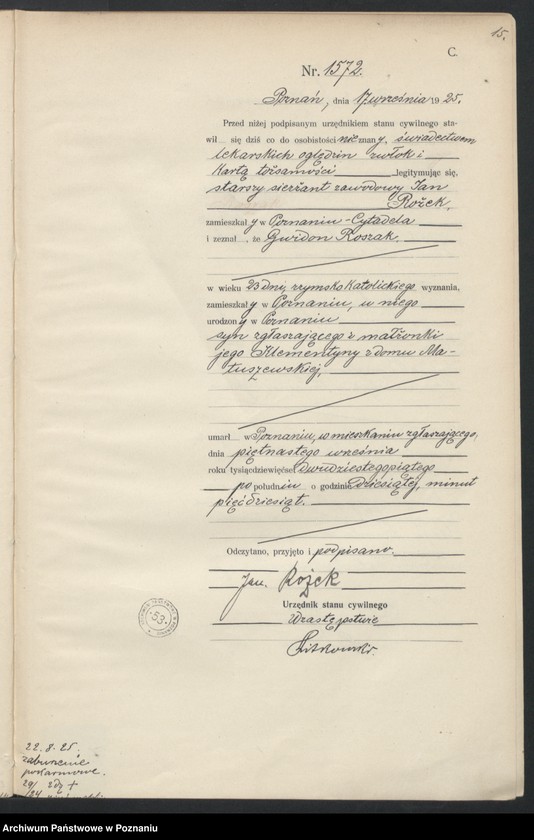 15.
C.
Nr. 1572.
Poznań, dnia 17 września 1925.
Przed niżej podpisanym urzędnikiem stanu cywilnego sta-
wił się dziś co do osobistości nieznany, świadectwem
lekarskich oględzin zwłok i
Kartą tożsamości legitymując się,
starszy sierżant zawodowy Jan
Rożek,
zamieszkały w Poznaniu-Cytadela
i zeznał, że Gwidon Roszak,
w wieku 23 dni, rzymsko Katolickiego wyznania,
zamieszkały w Poznaniu, u niego
urodzony w Poznaniu
syn zgłaszającego z małżonki
jego Klementyny z domu Ma-
tuszewskiej,
umarł w Poznaniu, w mieszkaniu zgłaszającego,
dnia piętnastego września
roku tysiącdziewięćset dwudziestegopiątego
po południu o godzinie dziesiątej, minut
pięćdziesiąt.
Odczytano, przyjęto i podpisano.
Jan Rożek
Urzędnik stanu cywilnego
W zastępstwie
53.
22. 8. 25.
zaburzenie
pokarmowe.
Archiwum Państwowe w Poznaniu